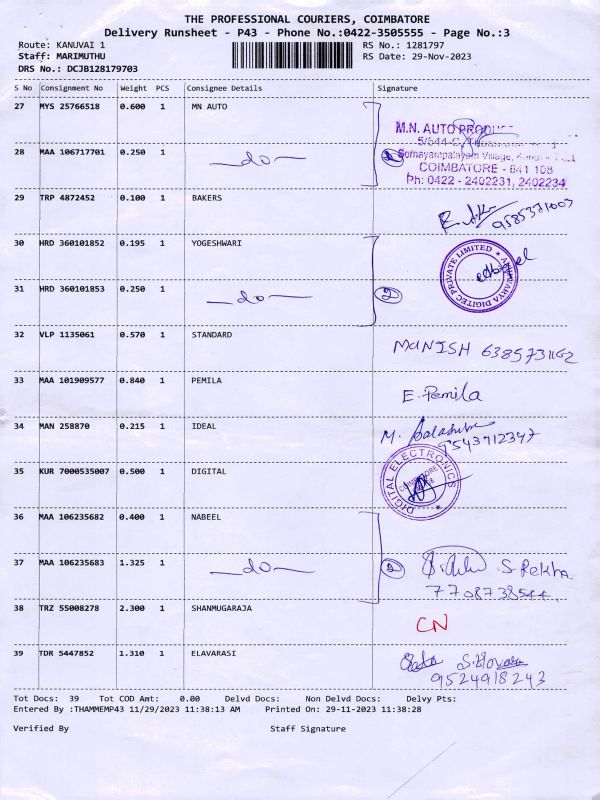 THE PROFESSIONAL COURIERS, COIMBATORE
Delivery Runsheet - P43 - Phone No.:0422-3505555 - Page No.:3
Route: KANUVAI 1 RS No.: 1281797
Staff: MARIMUTHU RS Date: 29-Nov-2023
DRS No.: DCJB128179703
S No Consignment No Weight PCS Consignee Details Signature
27 MYS 25766518 0.600 1 MN AUTO
M.N. AUTO
28 MAA 106717701 0.250 1 -do- 2
Somayampalayam Village,
COIMBATORE - 641 108
Ph: 0422 - 2402231, 2402234
29 TRP 4872452 0.100 1 BAKERS
9585371003
30 HRD 360101852 0.195 1 YOGESHWARI
DIGITEC PRIVATE LIMITED
31 HRD 360101853 0.250 1 -do- 2
32 VLP 1135061 0.570 1 STANDARD MUNISH 6385731162
33 MAA 101909577 0.840 1 PEMILA E. Pemila
34 MAN 258870 0.215 1 IDEAL M.
9543712347
35 KUR 7000535007 0.500 1 DIGITAL DIGITAL ELECTRONICS
COIMBATORE
36 MAA 106235682 0.400 1 NABEEL
37 MAA 106235683 1.325 1 -do- 2 S. Rekha
7708738544
38 TRZ 55008278 2.300 1 SHANMUGARAJA CN
39 TDR 5447852 1.310 1 ELAVARASI
9524918243
Tot Docs: 39 Tot COD Amt: 0.00 Delvd Docs: Non Delvd Docs: Delvy Pts:
Entered By :THAMMEMP43 11/29/2023 11:38:13 AM Printed On: 29-11-2023 11:38:28
Verified By Staff Signature